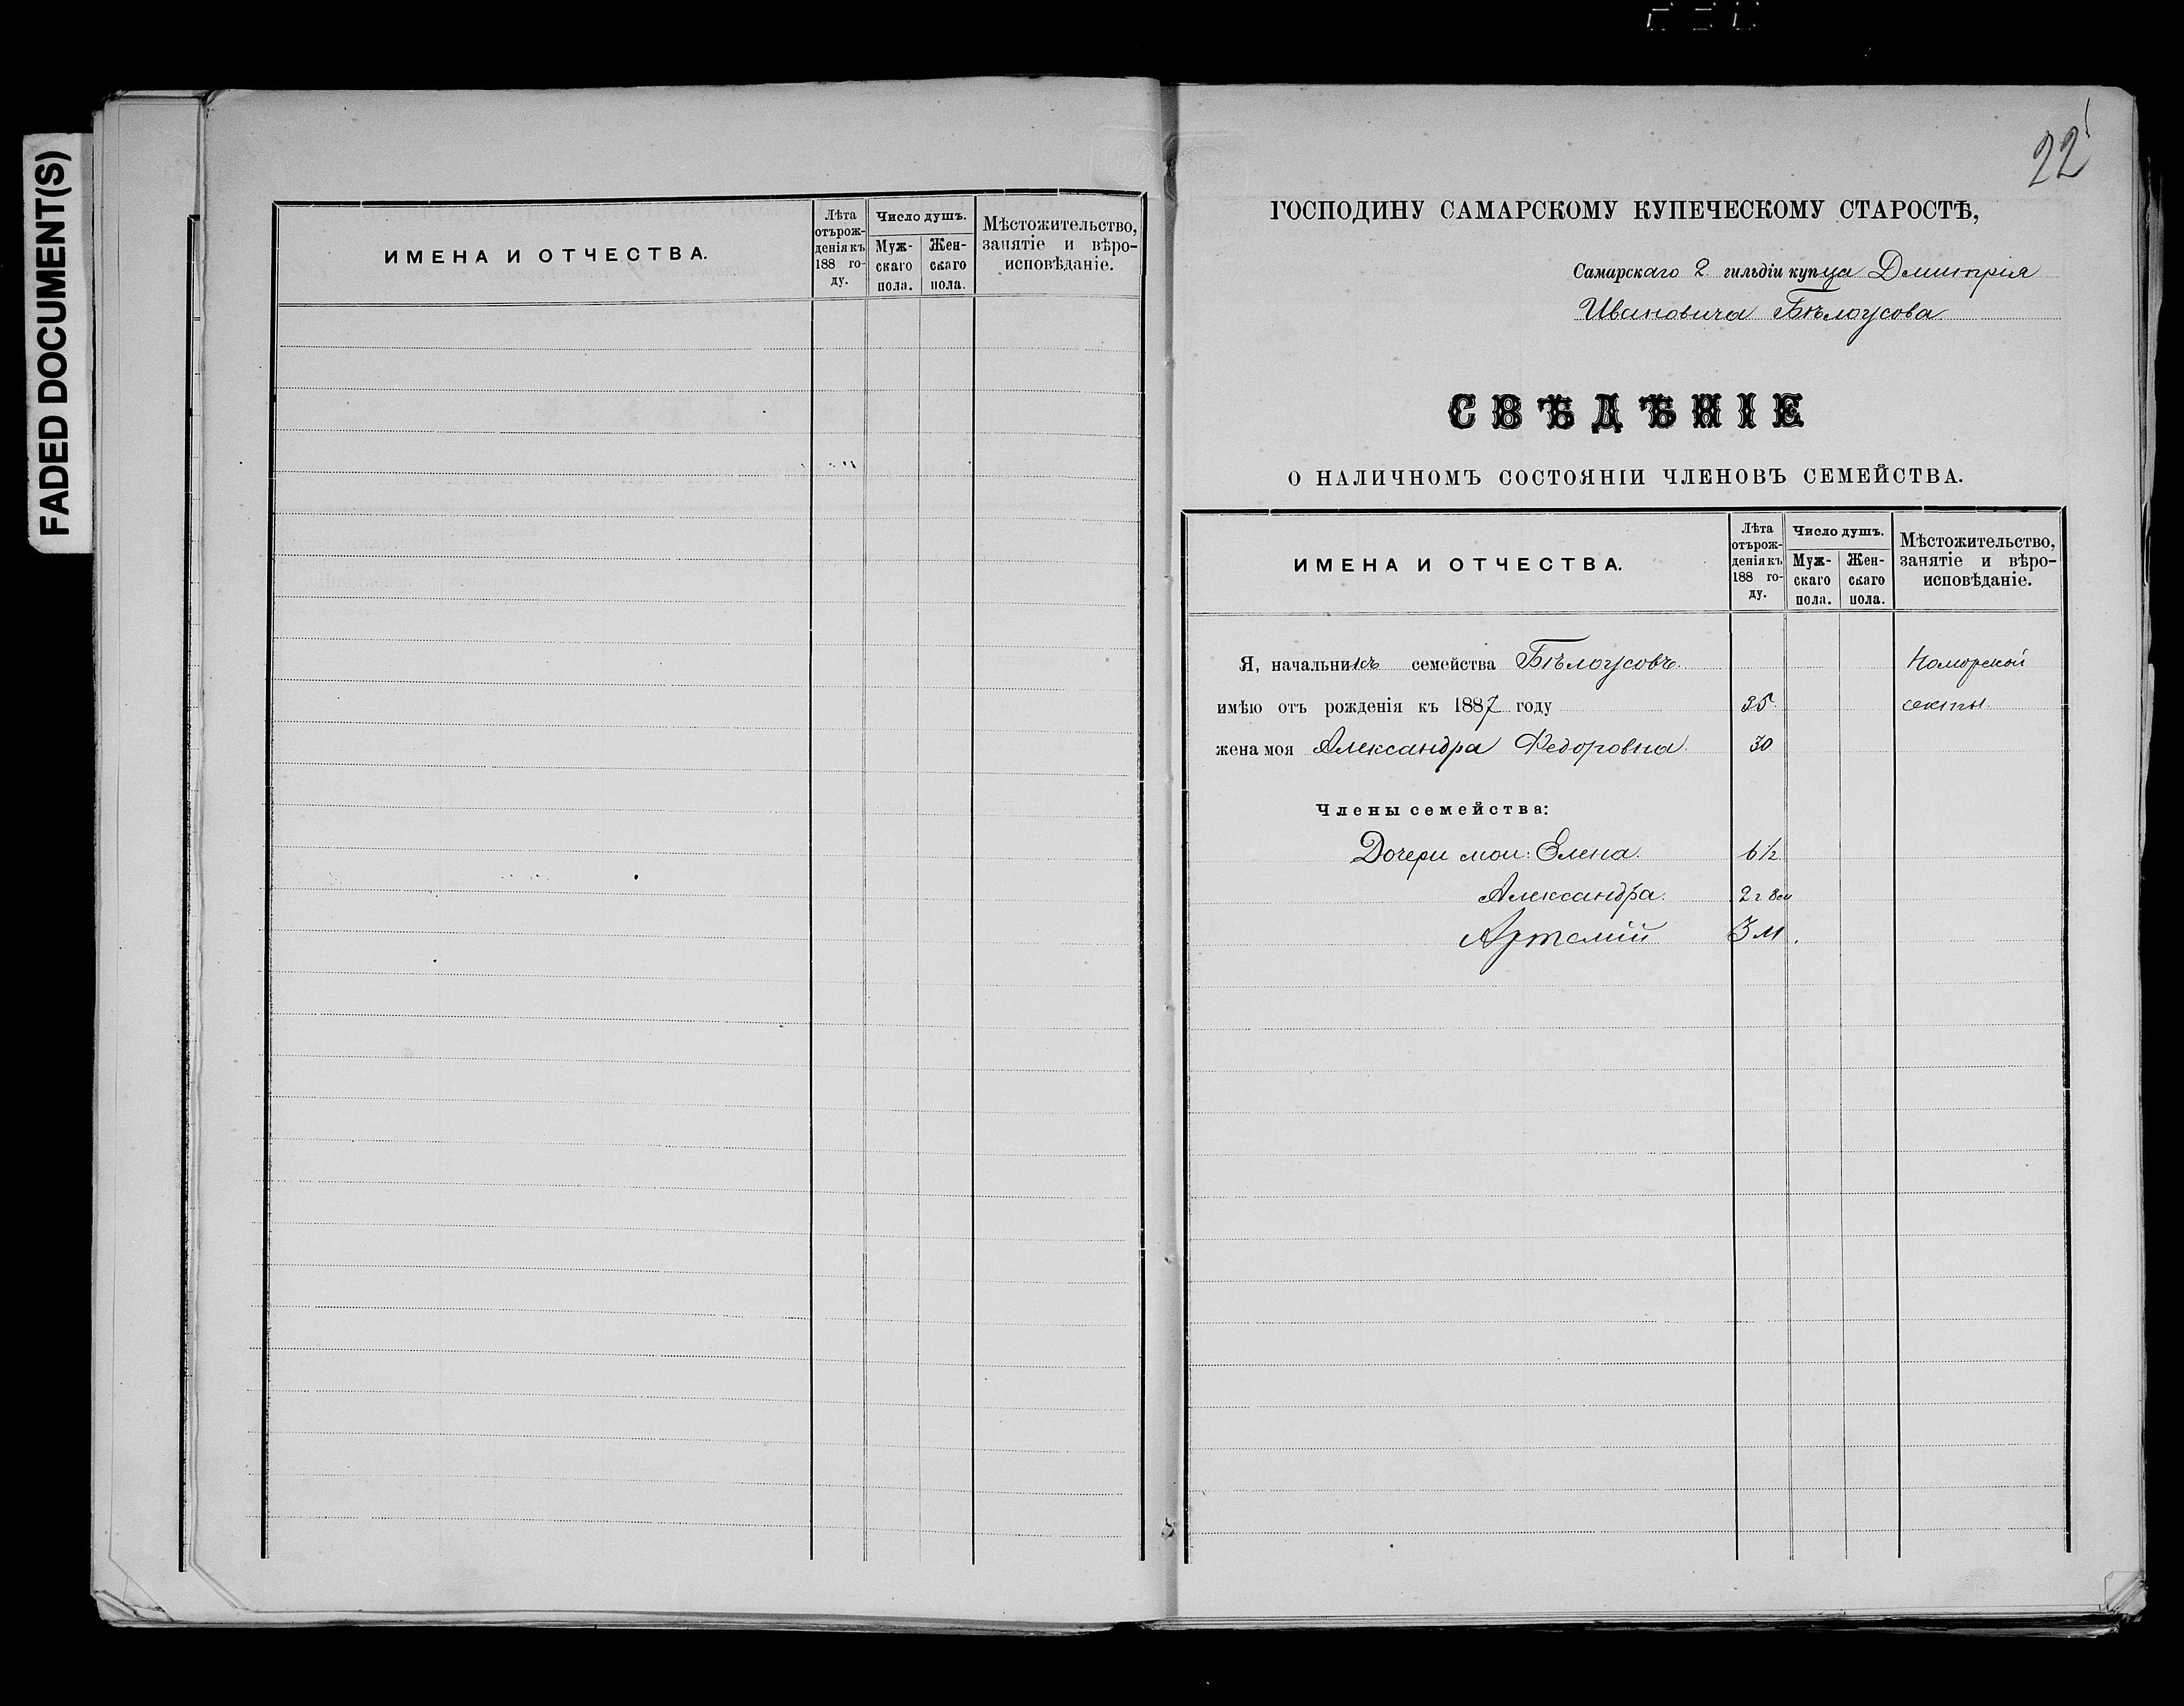 FADED DOCUMENT(S)
ИМЕНА И ОТЧЕСТВА.
Лѣта
отъ рож-
денія къ
188 го-
ду.
Число душъ.
Муж-
скаго
пола.
Жен-
скаго
пола.
Мѣстожительство,
занятіе и вѣро-
исповѣданіе.
22
ГОСПОДИНУ САМАРСКОМУ КУПЕЧЕСКОМУ СТАРОСТѢ,
Самарскаго 2 гильдіи купца Дмитрія
Ивановича Бѣлоусова
СВѢДѢНІЕ
О НАЛИЧНОМЪ СОСТОЯНІИ ЧЛЕНОВЪ СЕМЕЙСТВА.
ИМЕНА И ОТЧЕСТВА.
Лѣта
отъ рож-
денія къ
188 го-
ду.
Число душъ.
Муж-
скаго
пола.
Жен-
скаго
пола.
Мѣстожительство,
занятіе и вѣро-
исповѣданіе.
Я, начальникъ семейства Бѣлоусовъ. Поморской
имѣю отъ рожденія къ 1887 году 35. секты.
жена моя Александра Федоровна. 30
Члены семейства:
Дочери мои: Елена. 6 1/2
Александра. 2 г 8 м
Артемій 3 м.